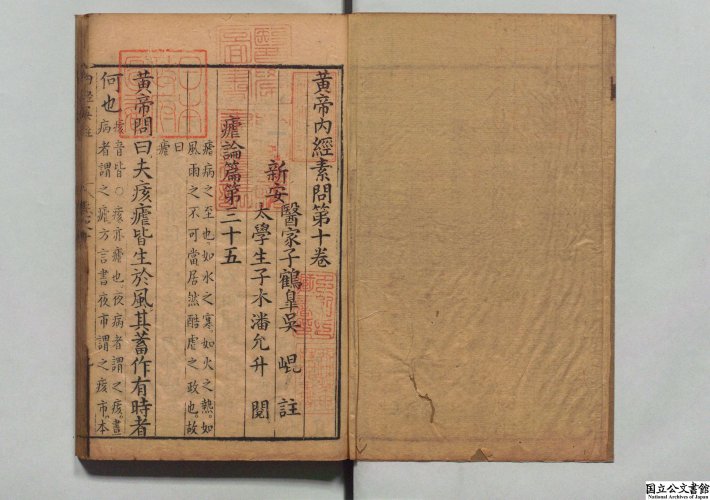 黃帝內經素問第十卷
新安
醫家子鶴臯吳 崐 註
太學生子水潘允升 閱
瘧論篇第三十五
瘧病之至也如水之寒如火之熱如
風雨之不可當居然酷虐之政也故
曰瘧
黃帝問曰夫痎瘧皆生於風其蓄作有時者
何也
痎音皆○痎亦瘧也夜病者謂之痎晝
病者謂之瘧方言晝市謂之痎市本
国立公文書館
National Archives of Japan